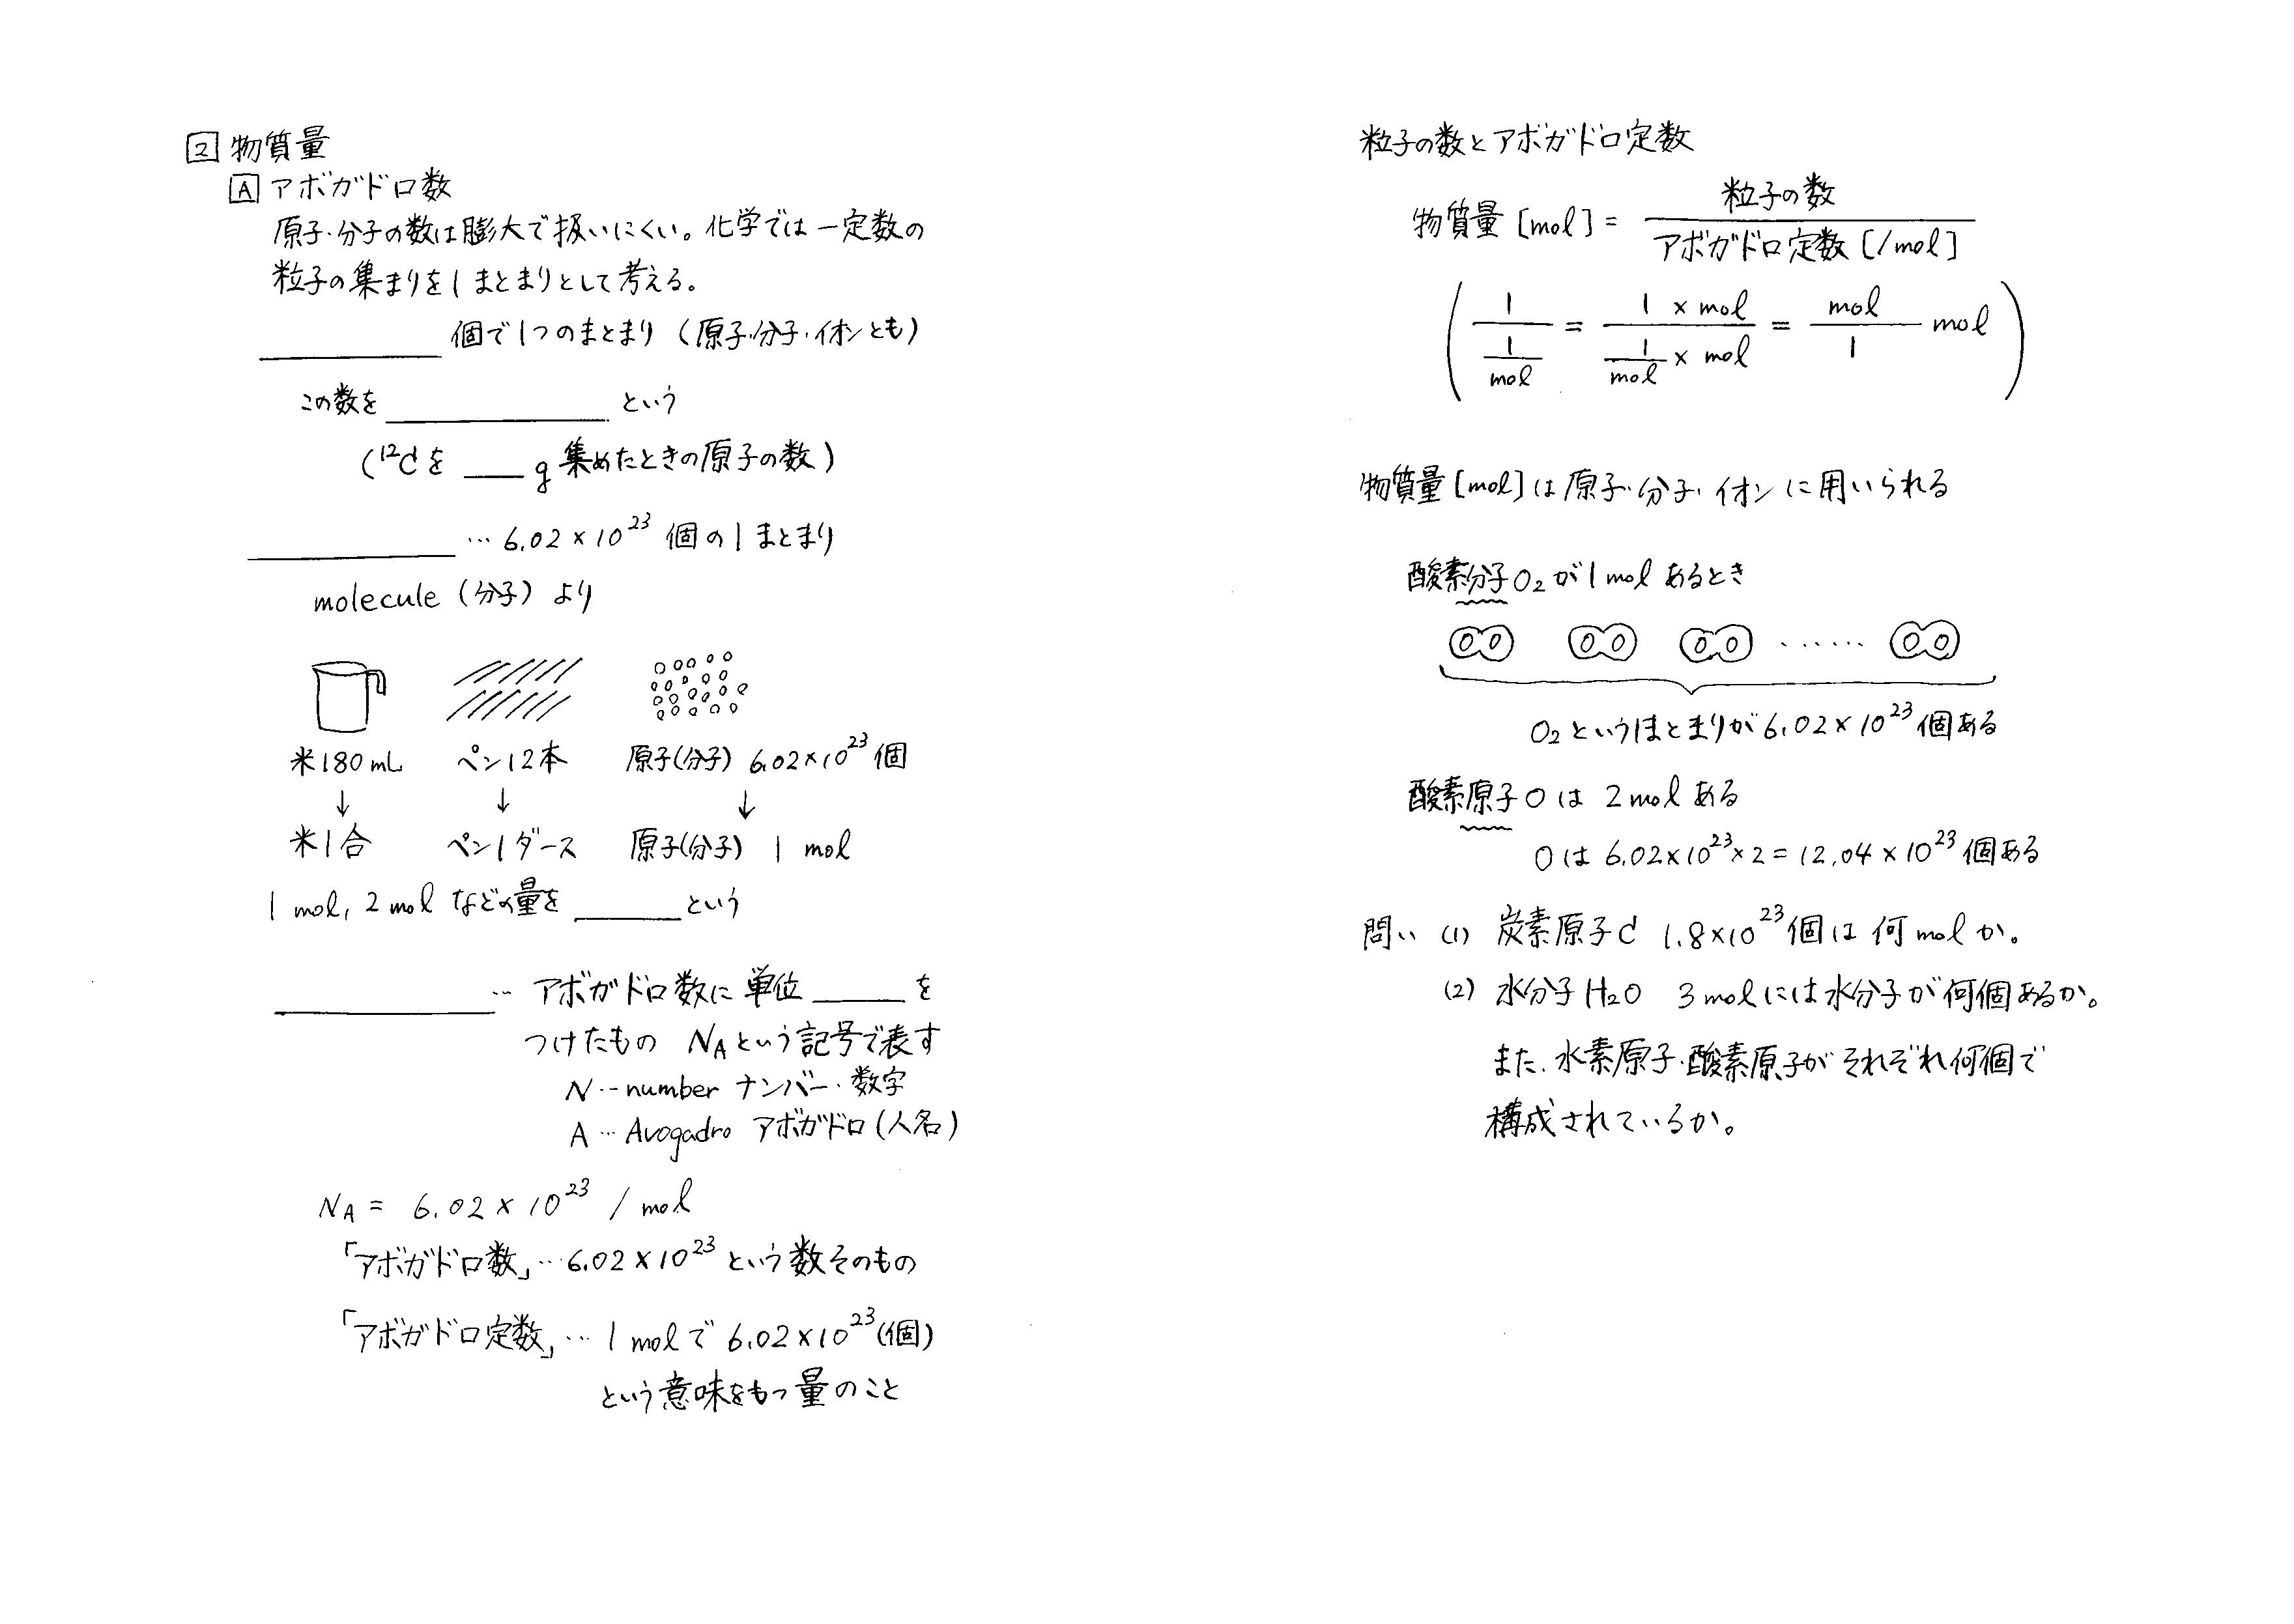 2 物質量
A アボガドロ数
原子・分子の数は膨大で扱いにくい。化学では一定数の
粒子の集まりを1まとまりとして考える。
______ 個で1つのまとまり（原子・分子・イオンとも）
この数を ______ という
（¹²Cを ___ g 集めたときの原子の数）
______ … 6.02×10²³ 個の1まとまり
molecule（分子）より
米180mL ペン12本 原子(分子) 6.02×10²³個
↓ ↓ ↓
米1合 ペン1ダース 原子(分子) 1 mol
1 mol, 2 mol などの量を ____ という
______ … アボガドロ数に単位 ____ を
つけたもの N_Aという記号で表す
N … number ナンバー・数字
A … Avogadro アボガドロ（人名）
N_A = 6.02×10²³ /mol
「アボガドロ数」… 6.02×10²³ という数そのもの
「アボガドロ定数」… 1 molで 6.02×10²³(個)
という意味をもつ量のこと
粒子の数とアボガドロ定数
物質量[mol] = 粒子の数 / アボガドロ定数[/mol]
( 1 / (1/mol) = (1 × mol) / (1/mol × mol) = mol / 1 mol )
物質量[mol]は原子・分子・イオンに用いられる
酸素分子O₂が1molあるとき
OO OO OO ······ OO
O₂というまとまりが6.02×10²³個ある
酸素原子Oは 2molある
Oは 6.02×10²³×2=12.04×10²³個ある
問い (1) 炭素原子C 1.8×10²³個は何molか。
(2) 水分子H₂O 3molには水分子が何個あるか。
また、水素原子・酸素原子がそれぞれ何個で
構成されているか。